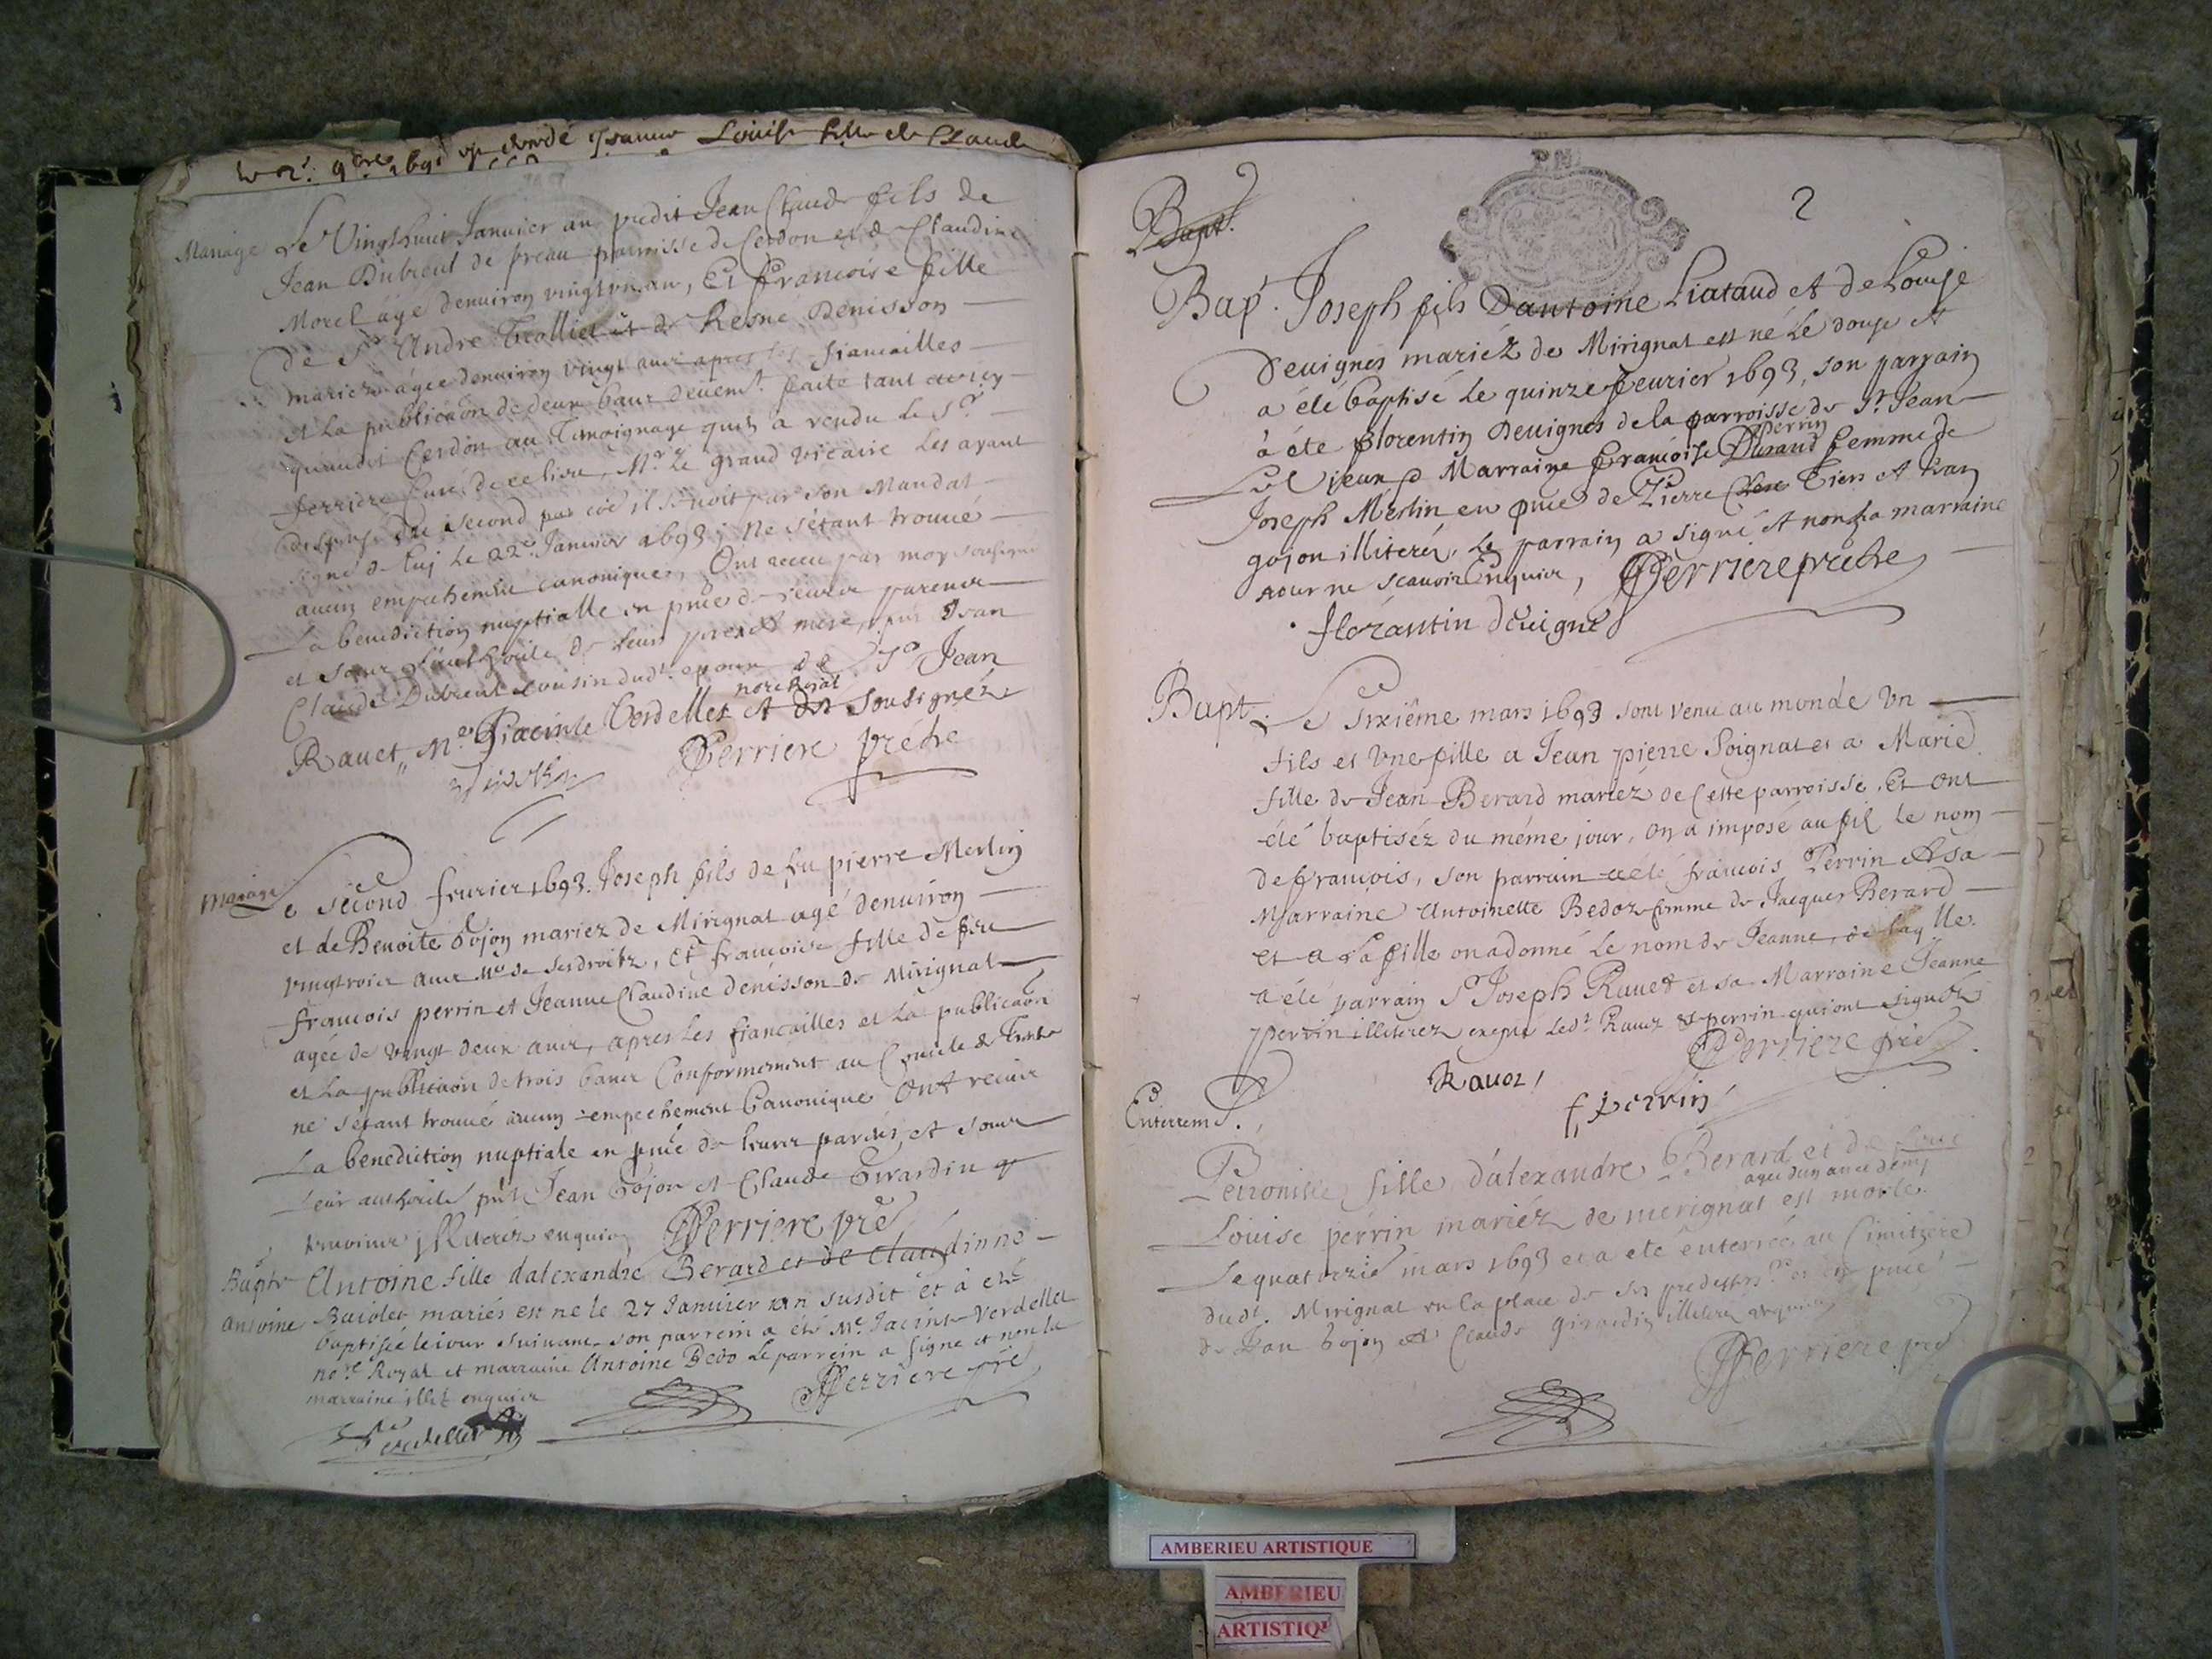 Louise fille de Claude
Mariage Le Vingthuict Januier an predit Jean Claude fils de
Jean Dubreul de preau parroisse de Cerdon et de Claudine
Morel âgé denuiron vingtun an, Et Francoise fille
de Sr André Trolliet et de Resne Denisson
mariez âgée denuiron vingt ans apres les fiancailles
et la publicaõn de deux bans deuemt. faite tant
qu'audit Cerdon au Temoignage qu'en a rendu le Sr.
ferriere Curé de ce lieu, Mr. Le grand vicaire les ayant
second par son Mandat
signé de luj le 22e. Januier 1693; Ne s'étant trouué
aucun empechemnt canonique, Ont receu par moy soussigné
La benediction nuptialle en pnce de leurs parents
et sous l'authorité de leurs pere et mere, pnt Jean
Claude Dubreul cousin dudt. epoux de Sr Jean
Rauet, Me. Hiacinte Verdellet nore Royal et Soussignéz
Perriere prêtre
Mariage Le Second feurier 1693. Joseph fils de feu pierre Merlin
et de Benoite Gojon mariez de Mirignat agé denuiron
vingtrois ans Me de ses droitz, Et francoise fille de feu
francois perrin et Jeanne Claudine denisson de Mirignat
agée de vingt deux ans, apres les fiancailles et la publicaõn
et La publicaõn de trois bans Conformément au Concile de Trente
ne s'étant trouué aucun empechement Canonique Ont receus
La benediction nuptiale en pnce de leurs parens, et sous
leur authorité pnt Jean Gojon et Claude Girardin
temoins illiterez enquis Perriere pre
Bapte Antoine fille dalexandre Berard et de Claudinne
antoine Baiolet mariés est ne le 27 Januier an susdit et à eté
baptisée le iour suiuant son parrein a été Me. Jacinte Verdellet
nore Royal et marraine Antoine Bedo Le parrein a signe et non la
marraine illit enquise Perriere pre
Verdellet
Bapt.
2
Bap. Joseph fils Dantoine Liataud et de Louise
Deuignes mariéz de Mirignat est né le douze et
a été baptisé le quinze feurier 1693, son parrain
à été florentin Deuignes de la parroisse de St. Jean
Le vieux et Marraine francoise perrin femme de
Joseph Merlin en pnce de Pierre Tiers et Jean
gojon illiterés, le parrain a signé et non la marraine
pour ne scauoir Enquise, Perriere prêtre
florantin deuigne
Bapt. Le Sixiême mars 1693 sont venu au monde Vn
fils et Vne fille a Jean pierre Soignat et a Marie
fille de Jean Berard mariéz de Cette parroisse, Et ont
été baptiséz du même jour, On a imposé au fil le nom
de francois, son parrain a été francois Perrin et sa
Marraine Antoinette Bedoz femme de Jacques Berard
et a La fille on a donné le nom de Jeanne, de laqlle
a été parrain Sr Joseph Rauet et sa Marraine Jeanne
perrin illiterez excepté ledt Rauet et perrin qui ont signéz
Perriere pre
Rauoz
f perrin
Enterremt.
Petronille fille d'alexandre Berard et de
agée d'un an et demy
Louise perrin mariéz de merignat est morte
Le quatorzie mars 1693 et a eté enterrée au Cimitiere
dudt. Mirignat en la place de ses predessrs. en pnce
de Jean Gojon et Claude Girardin illiteres enquis
Perriere pre
AMBERIEU ARTISTIQUE
AMBERIEU
ARTISTIQU